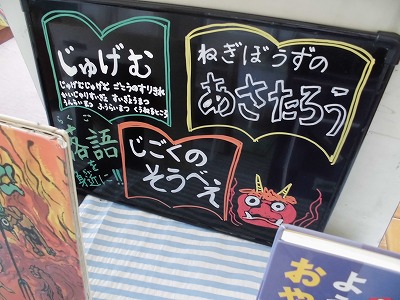 じゅげむ
じゅげむじゅげむ ごこうのすりきれ
かいじゃりすいぎょ すいぎょうまつ
うんらいまつ ふうらいまつ くうねるところ
ねぎぼうずの
あさたろう
らくご
落語
を
身近に!!
じごくの
そうべえ
よ
おや